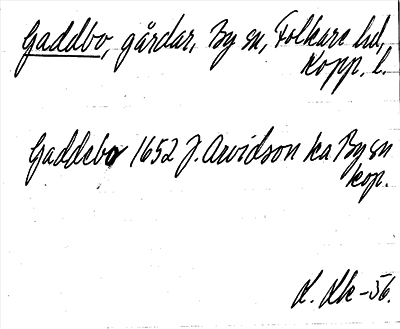 Gaddbo, gårdar, By sn, Folkare hd,
Kopp. l.
Gaddebo 1652 J. Arvidson ka By sn
kop.